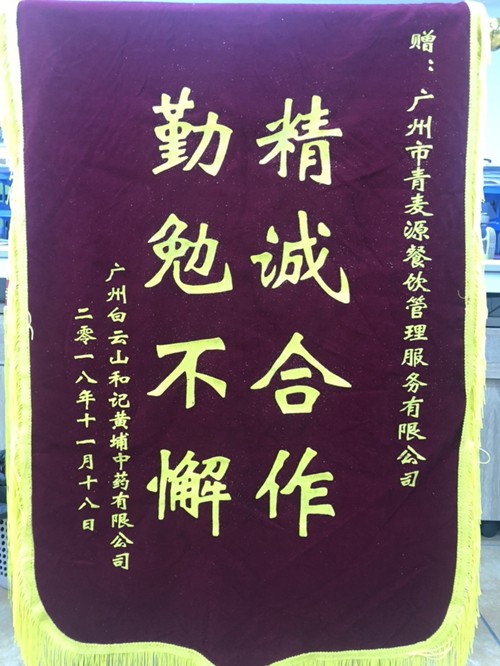 赠：广州市青麦源餐饮管理服务有限公司
精诚合作
勤勉不懈
广州白云山和记黄埔中药有限公司
二零一八年十一月十八日